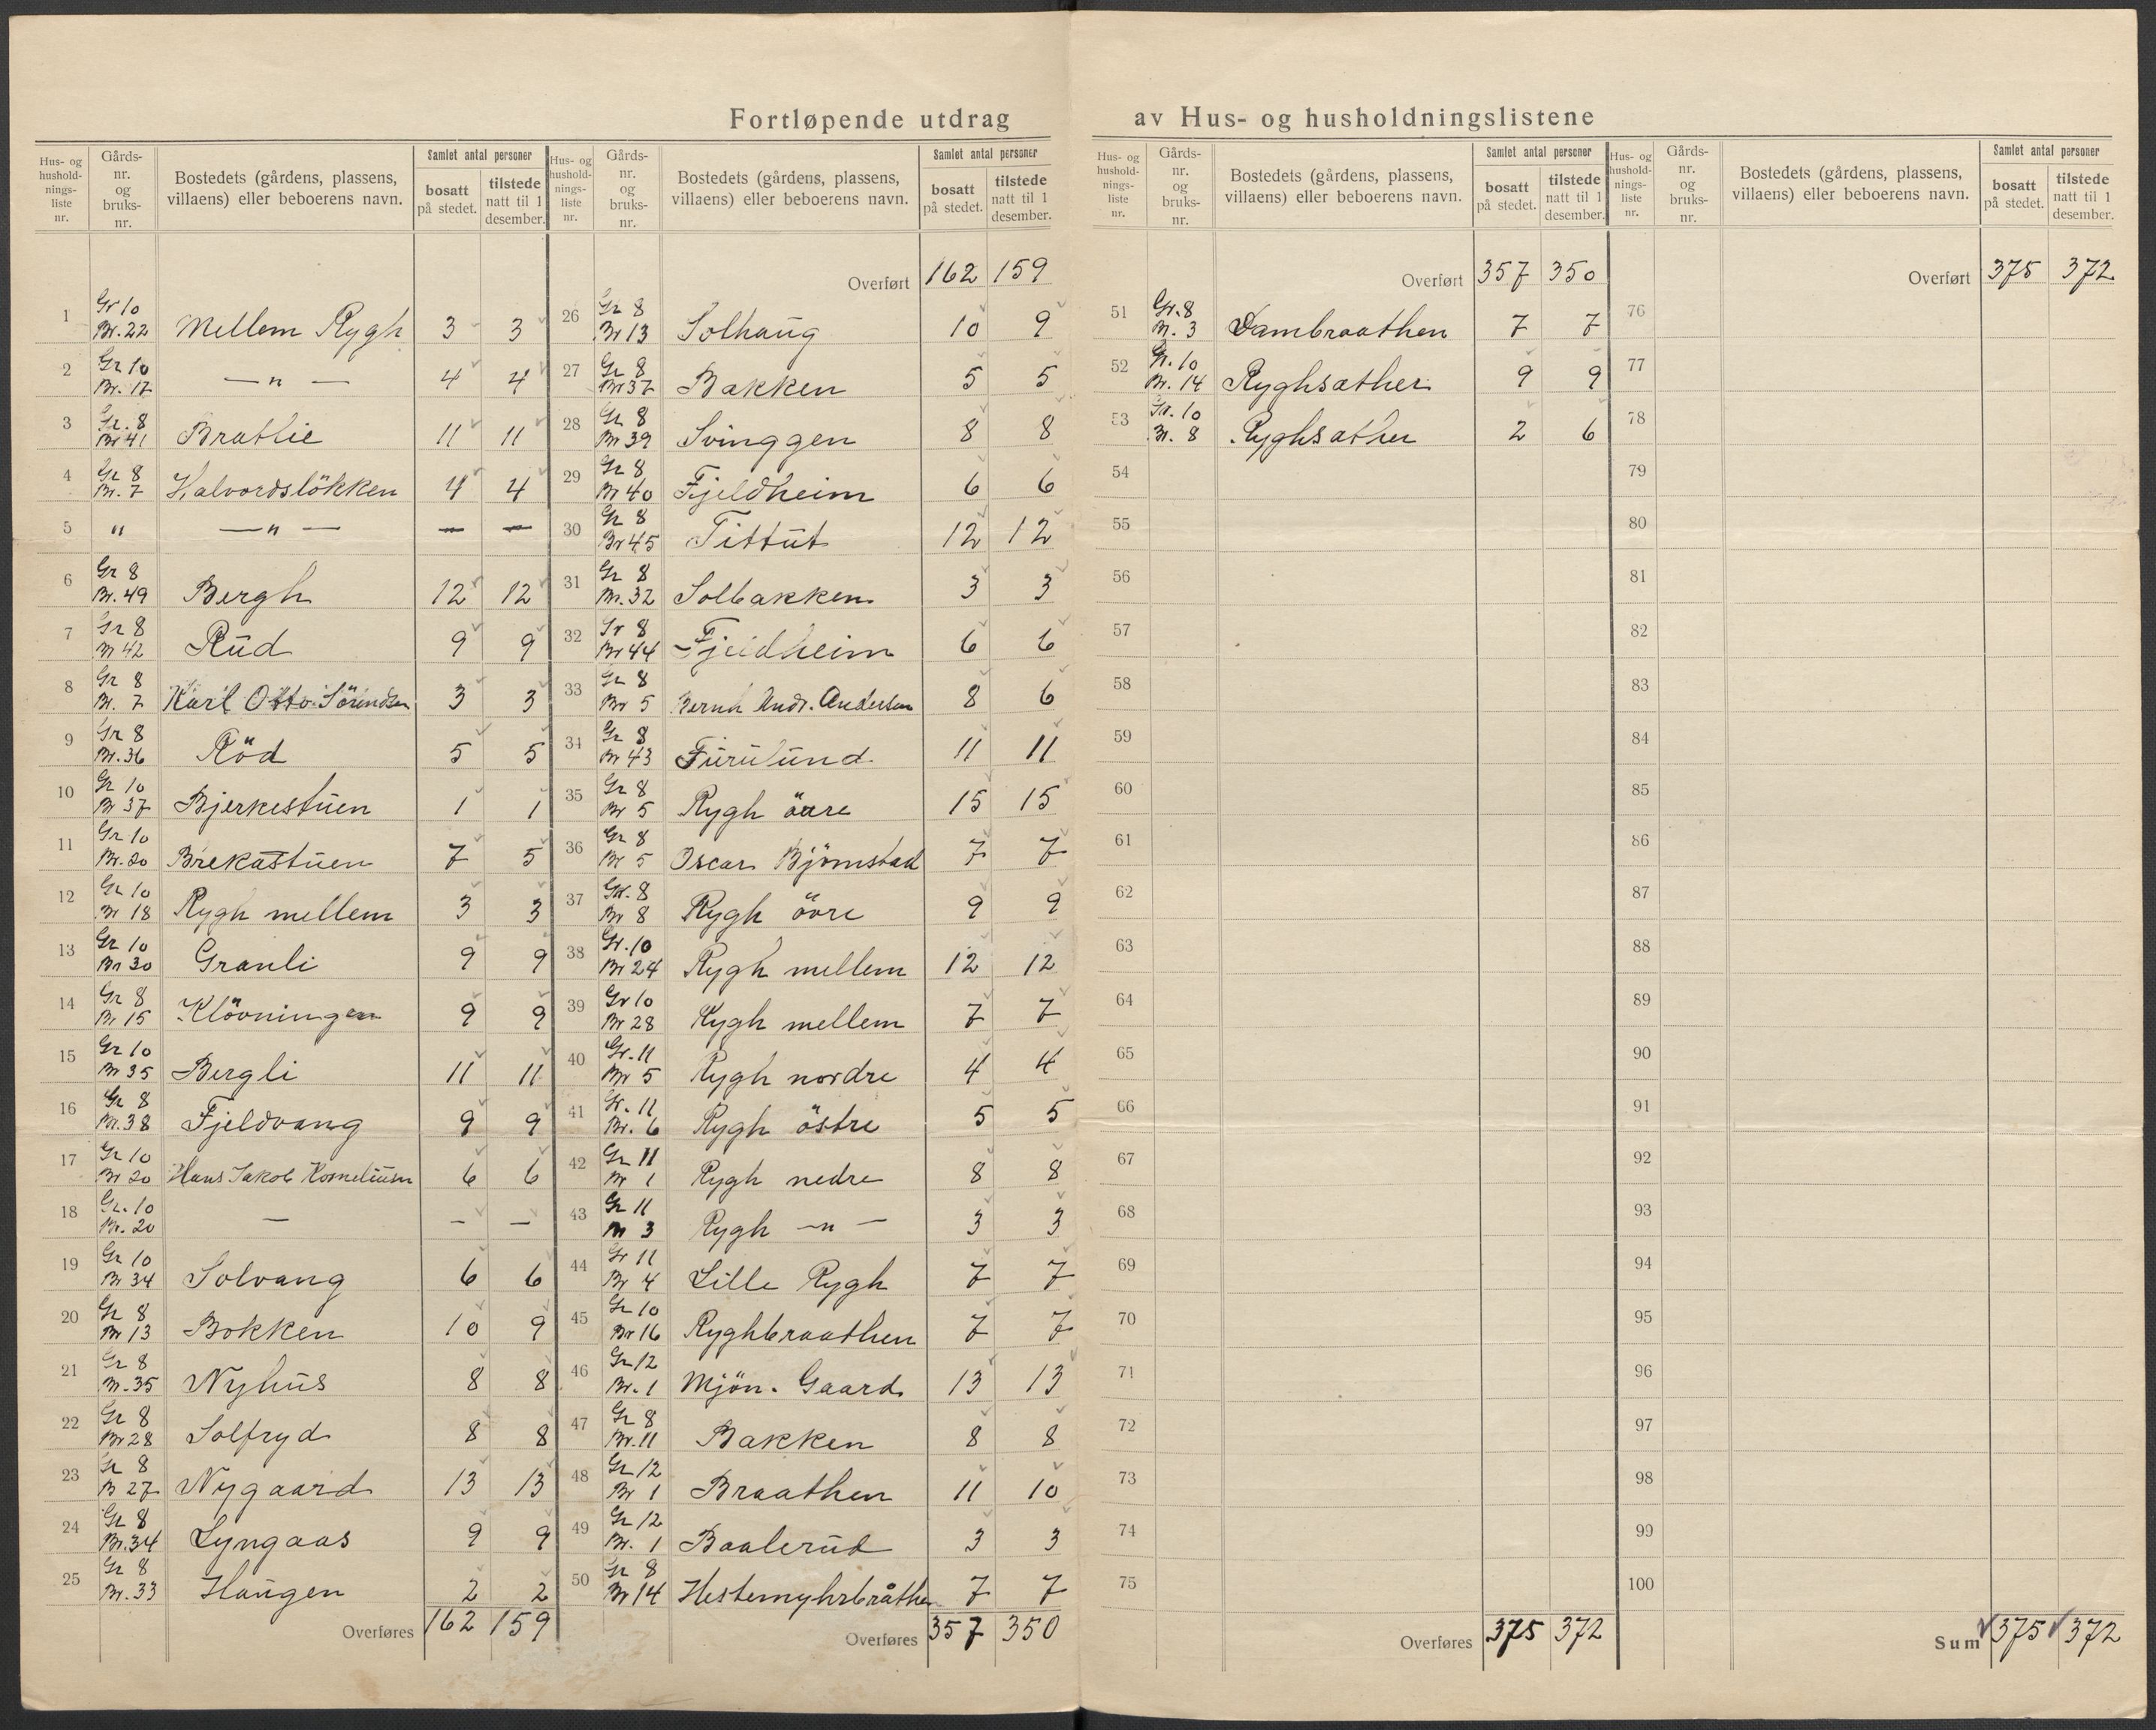 Fortløpende utdrag av Hus- og husholdningslistene
Hus- og husholdnings-liste nr. | Gårds-nr. og bruks-nr. | Bostedets (gårdens, plassens, villaens) eller beboerens navn. | Samlet antal personer bosatt på stedet. | tilstede natt til 1 desember.
1 Gr 10 Br. 22 Mellem Rygh 3 3
2 Gr 10 Br. 17 — " — 4 4
3 Gr. 8 Br 41 Bratlie 11 11
4 Gr 8 Br. 7 Halvordslökken 4 4
5 " — " — — —
6 Gr 8 Br. 49 Bergh 12 12
7 Gr 8 Br 42 Rud 9 9
8 Gr 8 Br. 7 Karl Otto Sörendsen 3 3
9 Gr 8 Br. 36 Röd 5 5
10 Gr 10 Br 37 Bjerkestuen 1 1
11 Gr 10 Br. 20 Brekastuen 7 5
12 Gr 10 Br 18 Rygh mellem 3 3
13 Gr 10 Br 30 Granli 9 9
14 Gr 8 Br 15 Klövningen 9 9
15 Gr 10 Br 35 Bergli 11 11
16 Gr 8 Br. 38 Fjeldvang 9 9
17 Gr 10 Br 20 Hans Jakob Korneliusen 6 6
18 Gr. 10 Br. 20 — — —
19 Gr 10 Br 34 Solvang 6 6
20 Gr 8 Br 13 Bokken 10 9
21 Gr 8 Br. 35 Nyhus 8 8
22 Gr 8 Br 28 Solfryd 8 8
23 Gr 8 B 27 Nygaard 13 13
24 Gr 8 Br. 34 Lyngaas 9 9
25 Gr 8 Br. 33 Haugen 2 2
Overføres 162 159
Hus- og husholdnings-liste nr. | Gårds-nr. og bruks-nr. | Bostedets (gårdens, plassens, villaens) eller beboerens navn. | Samlet antal personer bosatt på stedet. | tilstede natt til 1 desember.
Overført 162 159
26 Gr 8 Br 13 Solhaug 10 9
27 Gr 8 Br 37 Bakken 5 5
28 Gr 8 Br 39 Svinggen 8 8
29 Gr 8 Br 40 Fjeldheim 6 6
30 Gr 8 Br 45 Tittut 12 12
31 Gr 8 Br. 32 Solbakken 3 3
32 Gr 8 Br 44 Fjeldheim 6 6
33 Gr 8 Br 5 Bernh Andr. Andersen 8 6
34 Gr 8 Br 43 Furulund 11 11
35 Gr 8 Br 5 Rygh övre 15 15
36 Gr 8 Br 5 Oscar Björnstad 7 7
37 Gr. 8 Br 8 Rygh övre 9 9
38 Gr. 10 Br 24 Rygh mellem 12 12
39 Gr 10 Br 28 Rygh mellem 7 7
40 Gr. 11 Br 5 Rygh nordre 4 4
41 Gr. 11 Br. 6 Rygh östre 5 5
42 Gr 11 Br 1 Rygh nedre 8 8
43 Gr 11 Br 3 Rygh — " — 3 3
44 Gr 11 Br 4 Lille Rygh 7 7
45 Gr 10 Br 16 Ryghbraathen 7 7
46 Gr 12 Br. 1 Mjön. Gaard 13 13
47 Gr 8 Br. 11 Bakken 8 8
48 Gr 12 Br 1 Braathen 11 10
49 Gr 12 Br. 1 Baalerud 3 3
50 Gr 8 Br 14 Hestemyhrbråthen 7 7
Overføres 357 350
Hus- og husholdnings-liste nr. | Gårds-nr. og bruks-nr. | Bostedets (gårdens, plassens, villaens) eller beboerens navn. | Samlet antal personer bosatt på stedet. | tilstede natt til 1 desember.
Overført 357 350
51 Gr. 8 Br. 3 Dambraathen 7 7
52 Gr. 10 Br. 14 Ryghsæther 9 9
53 Gr. 10 Br. 8 Ryghsæther 2 6
54
55
56
57
58
59
60
61
62
63
64
65
66
67
68
69
70
71
72
73
74
75
Overføres 375 372
Hus- og husholdnings-liste nr. | Gårds-nr. og bruks-nr. | Bostedets (gårdens, plassens, villaens) eller beboerens navn. | Samlet antal personer bosatt på stedet. | tilstede natt til 1 desember.
Overført 375 372
76
77
78
79
80
81
82
83
84
85
86
87
88
89
90
91
92
93
94
95
96
97
98
99
100
Sum 375 372